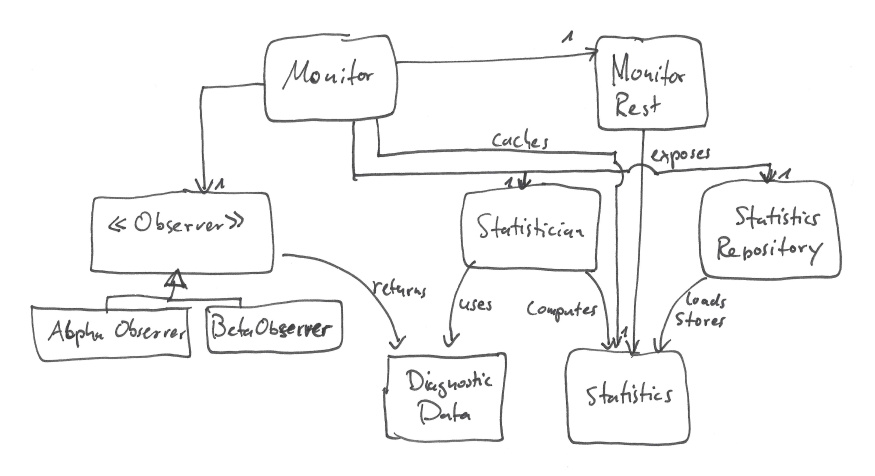 1
Monitor
Monitor
Rest
caches
exposes
1
1
1
<< Observer >>
Statistician
Statistics
Repository
returns
uses
Computes
Loads
Stores
1
Alopha Observer
BetaObserver
Diagnostic
Data
Statistics